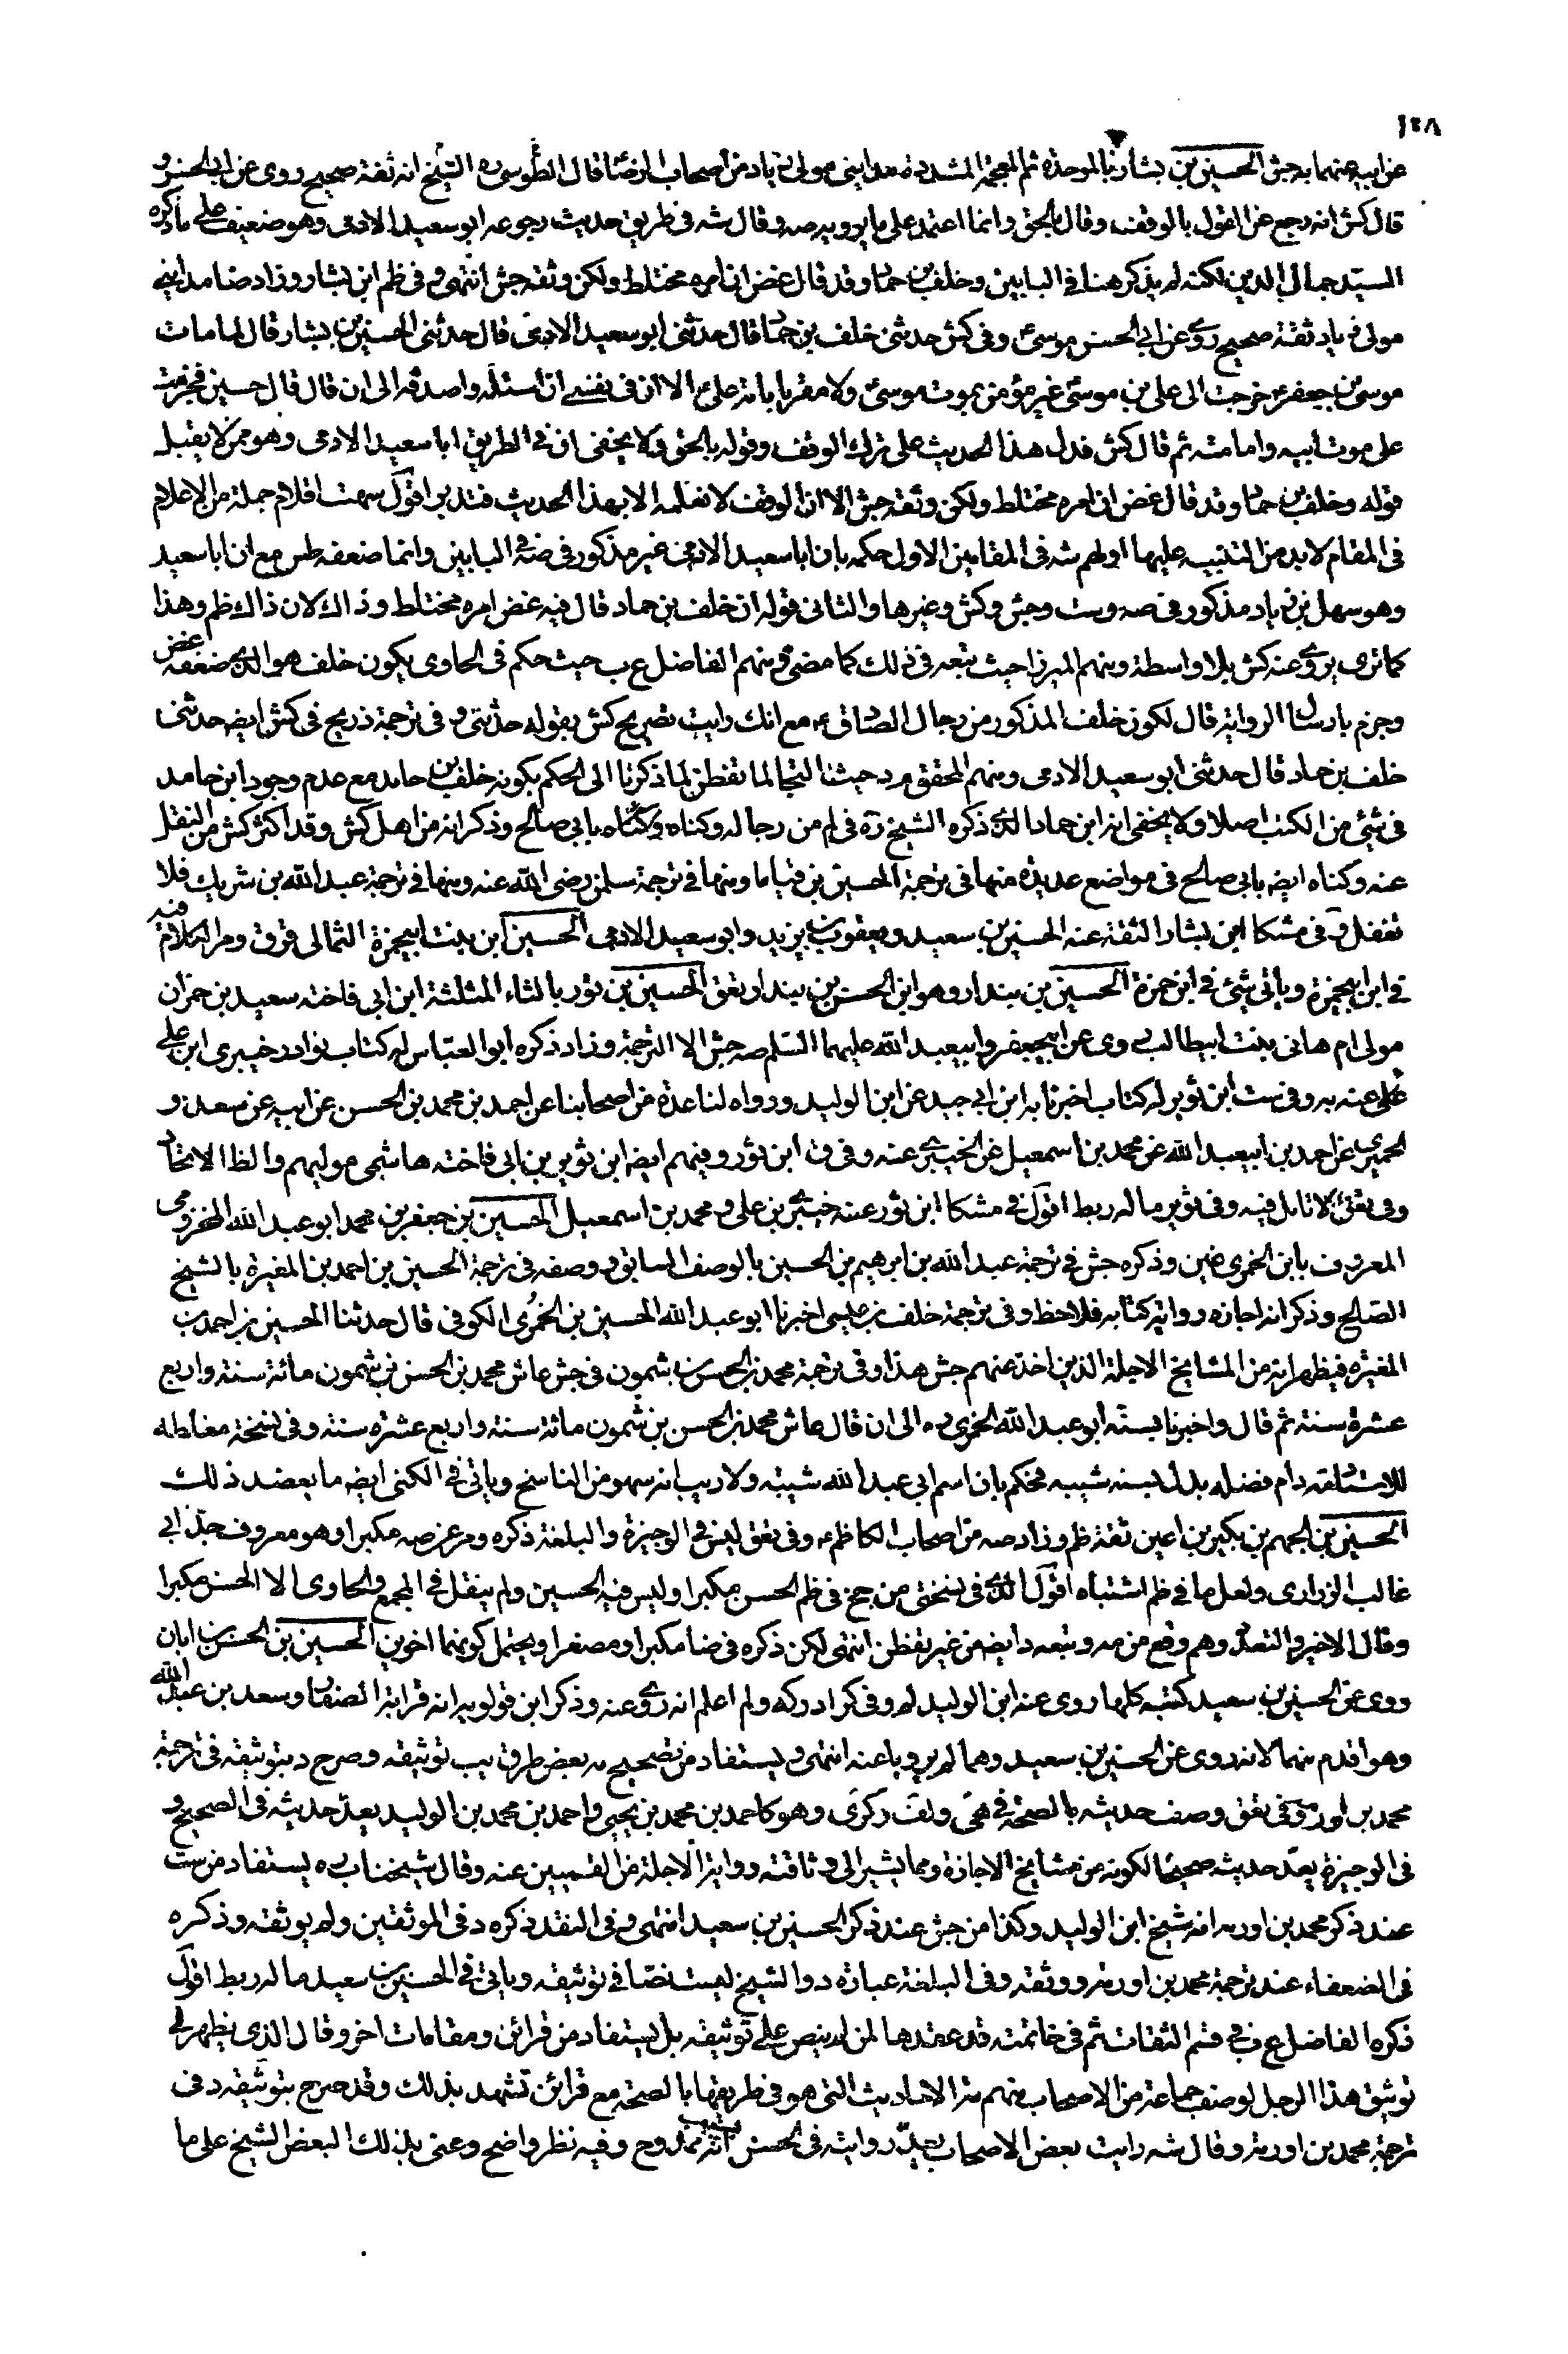 ١٣٨
عن ابيه عنهما به جش الحسين بن بشار بالموحدة ثم المعجمة المشددة مدايني مولى زياد من اصحاب الرضا قال الطوسي ره الشيخ انه ثقة صحيح روى عن ابي الحسن و
قال كش انه رجع عن القول بالوقف وقال بالحق وانما اعتمد على ما يرويه صه وقال شه في طريق حديث رجوعه ابو سعيد الادمى وهو ضعيف على ما ذكره
السيد جمال الدين لكنه لم يذكر هنا في البابين وخلف بن حماد وقد قال غض ان امره مختلط ولكن وثقه جش انتهى وفي ظم ابن بشار وزاد ضا مدايني
مولى زياد ثقة صحيح روى عن ابي الحسن موسى وفي كش حدثني خلف بن حماد قال حدثني ابو سعيد الادمى قال حدثني الحسين بن بشار قال لما مات
موسى بن جعفر خرجت الى علي بن موسى غير مؤمن بموت موسى ولا مقر بامامة علي الا ان في نفسي ان اسئله واصدقه الى ان قال قال حسين فجزمت
على موت ابيه وامامته ثم قال كش فدل هذا الحديث على ترك الوقف وقوله بالحق في لا يخفى ان في الطريق ابا سعيد الادمى وهو ممن لا يقبل
قوله وخلف بن حماد وقد قال غض ان امره مختلط ولكن وثقه جش الا ان الوقف لا نعلمه الا بهذا الحديث فتدبر اقول سهت اقلام جملة من الاعلام
في المقام لابد من التنبيه عليها اولهم شه في المقامين الاول حكمه بان ابا سعيد الادمى غير مذكور في البابين وانما ضعفه طس مع ان ابا سعيد
وهو سهل بن زياد مذكور في صه وست وجش وكش وغيرها والثاني قوله ان خلف بن حماد قال فيه غض امره مختلط وذاك لان ذاك ظم وهذا
كما ترى يروي عنه كش بلا واسطة ومنهم الميرزا حيث تبعه في ذلك كما مضى ومنهم الفاضل ع ب حيث حكم في الحاوى بكون خلف هو الذي ضعفه غض
وجزم بارسال الرواية قال لكون خلف المذكور من رجال الصادق مع انك رايت تصريح كش بقوله حدثني و في ترجمة ذريح في كش ايضه حدثني
خلف بن حماد قال حدثني ابو سعيد الادمى ومنهم المحقق مد حيث التجا لما تفطن لما ذكرنا الى الحكم بكونه خلف بن حامد مع عدم وجود ابن حامد
في شئ من الكتب اصلا ولا يخفى انه ابن حماد الذي ذكره الشيخ ره في لم من رجاله وكناه بابي صالح وذكر انه من اهل كش وقد اكثر كش من النقل
عنه وكناه ايضه بابي صالح في مواضع عديدة منها في ترجمة الحسين بن قياما ومنها في ترجمة سلمان رضي الله عنه ومنها في ترجمة عبد الله بن شريك فلا
تغفل وفي مشكا ابن بشار الثقة عنه الحسين بن سعيد ويعقوب بن يزيد وابو سعيد الادمى الحسين ابن بنت ابيحمزة الثمالى فرق ومر الكلام فيه
في ابن ابيحمزة وياتي شئ في ابن حمزة الحسين بن بندار وهو ابن الحسن بن بندار تعق الحسين بن ثور بالثاء المثلثة ابن ابي فاخته سعيد بن حمران
مولى ام هاني بنت ابيطالب روى عن ابيجعفر وابيعبد الله عليهما السلم صه جش الا الترجمة وزاد ذكره ابو العباس له كتاب نوادر خيبرى ابن علي
عنه به وفي ست ابن ثوير له كتاب اخبرنا به ابن ابي جيد عن ابن الوليد ورواه لنا عدة من اصحابنا عن احمد بن محمد بن الحسن عن ابيه عن سعد و
الحميرى عن احمد بن ابيعبد الله عن محمد بن اسمعيل عن الخيبرى عنه وفي ق ابن ثور وفيهم ايضه ابن ثوير بن ابي فاخته هاشمى موليهم والظ الاتحاد
وفي تعق لا تامل فيه وفي ثوير ما له ربط اقول في مشكا ابن ثور عنه خيبرى بن علي ومحمد بن اسمعيل الحسين بن جعفر بن محمد ابو عبد الله المخزومى
المعروف بابن الخمرى ضين وذكره جش في ترجمة عبد الله بن ابرهيم بن الحسين بالوصف السابق ووصفه في ترجمة الحسين بن احمد بن المغيرة بالشيخ
الصالح وذكر انه اجازه رواية كتابه فلاحظ وفي ترجمة خلف بن عيسى اخبرنا ابو عبد الله الحسين بن الخمرى الكوفى قال حدثنا الحسين بن احمد بن
المغيره فيظهر انه من المشايخ الاجلة الذين اخذ عنهم جش هذا وفي ترجمة محمد بن الحسن بن شمون في جش عاش محمد بن الحسن بن شمون مائة سنة واربع
عشرة سنة ثم قال واخبرنا بسنه ابو عبد الله الخمرى ره الى ان قال عاش محمد بن الحسن بن شمون مائة سنة واربع عشره سنة وفي نسخة مغلطه
للاستاد دام فضله بدل بسنه شيبه فحكم بان اسم ابي عبد الله شيبه ولا ريب انه سهو من الناسخ وياتي في الكنى ايضه ما يعضد ذلك
الحسين بن الجهم بن بكير بن اعين ثقة ظم وزاد صه من اصحاب الكاظم وفي تعق ليس في الوجيزة والبلغة ذكره ومر عن صه مكبرا وهو معروف جد ابي
غالب الزرارى ولعل ما في ظم اشتباه اقول الذي في نسختى من جخ في ظم الحسن مكبرا وليس فيه الحسين ولم ينقل في المجمع والحاوى الا الحسن مكبرا
وقال الاخير والتعدد وهم وقع من صه وتبعه د ايضه من غير تفطن انتهى لكن ذكره في ضا مكبرا ومصغرا ويحتمل كونهما اخوين الحسين بن الحسن بن ابان
روى عن الحسين بن سعيد كتبه كلها روى عنه ابن الوليد لم وفي كر ادركه ولم اعلم انه روى عنه وذكر ابن قولويه انه قرابة الصفار وسعد بن عبد الله
وهو اقدم منهما لانه روى عن الحسين بن سعيد وهما لم يرويا عنه انتهى ويستفاد من تصحيح مه بعض طرق يب توثيقه وصرح د بتوثيقه في ترجمة
محمد بن اورمة وفي تعق وصف حديثه بالصحة في هى ولف وكرى وهو كاحمد بن محمد بن يحيى واحمد بن محمد بن الوليد يعد حديثه في الصحيح و
في الوجيزة يعد حديثه صحيحا لكونه من مشايخ الاجازة ومما يشير الى وثاقته رواية الاجلة من القميين عنه وقال شيخنا ره يستفاد من ست
عند ذكر محمد بن اورمه انه شيخ ابن الوليد وكذا من جش عند ذكر الحسين بن سعيد انتهى وفي النقد ذكره د في الموثقين ولم يوثقه وذكره
في الضعفاء عند ترجمة محمد بن اورمة ووثقه وفي البلغة عبارة د والشيخ ليست نصا في توثيقه وياتي في الحسين بن سعيد ما له ربط اقول
ذكره الفاضل ع ب في قسم الثقات ثم في خاتمته قد عقدها لمن لم ينص على توثيقه بل يستفاد من قرائن ومقامات اخر وقال الذي يظهر لي
توثيق هذا الرجل لوصف جماعة من الاصحاب منهم مه الاحاديث التي هو في طريقها بالصحة مع قرائن تشهد بذلك وقد صرح بتوثيقه د في
ترجمة محمد بن اورمة وقال شه رايت بعض الاصحاب يعد روايته في الحسن بسبب انه ممدوح وفيه نظر واضح وعنى بذلك البعض الشيخ على ما